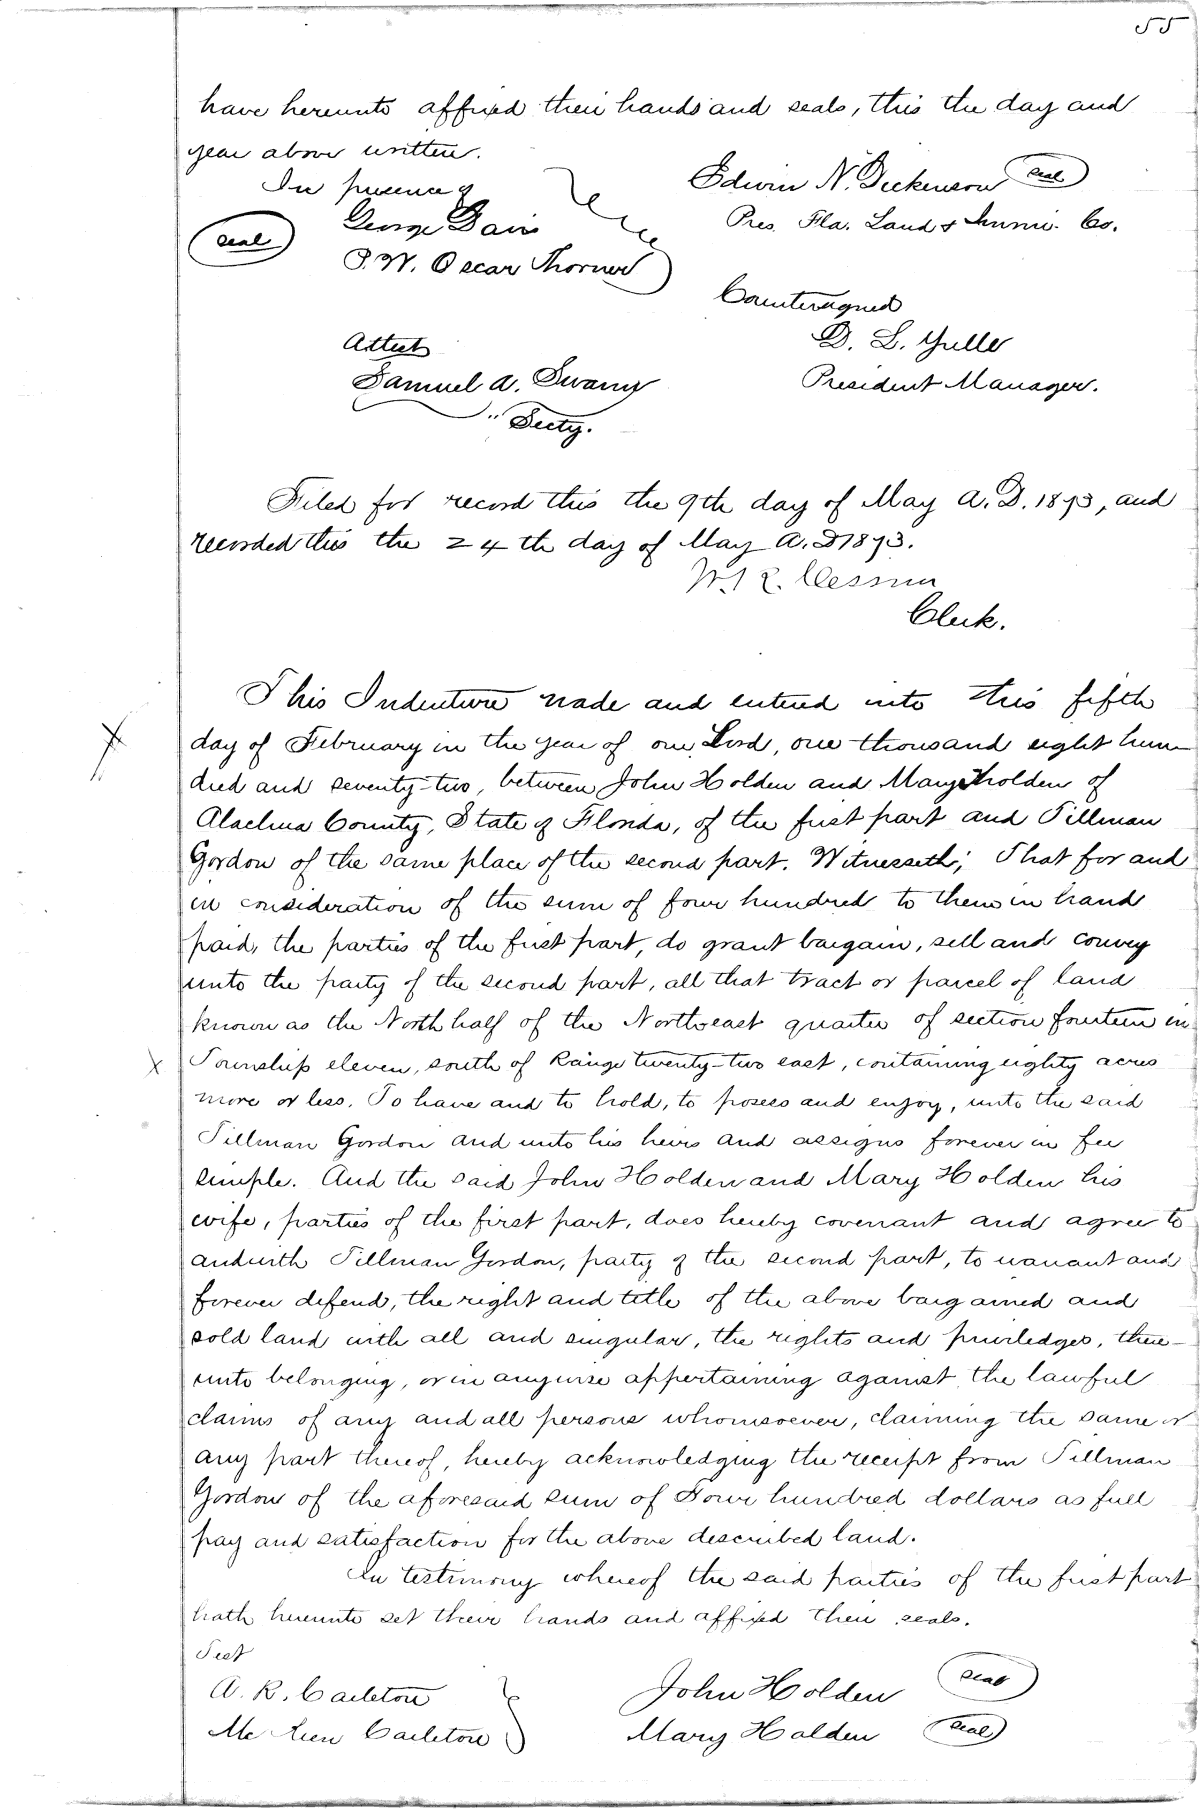 55
have hereunto affixed their hands and seals, this the day and
year above written.
In presence of
Edwin N. Dickenson seal
seal
George Davis
Pres. Fla. Land & Immi. Co.
P. W. Oscar Thorner
Countersigned
Attest
D. L. Yulle
Samuel A. Swann
President Manager.
" Secty.
Filed for record this the 9th day of May A.D. 1873, and
recorded this the 24th day of May A.D 1873.
Cessna
Clerk.
This Indenture made and entered into this fifth
day of February in the year of our Lord, one thousand eight hun
dred and seventy-two, between John Holden and Mary Holden of
Alachua County, State of Florida, of the first part and Tillman
Gordon of the same place of the second part. Witnesseth; That for and
in consideration of the sum of four hundred to them in hand
paid, the parties of the first part, do grant bargain, sell and convey
unto the party of the second part, all that tract or parcel of land
known as the North half of the Northeast quarter of section fourteen in
x Township eleven, south of Range twenty-two east, containing eighty acres
more or less. To have and to hold, to posess and enjoy, unto the said
Tillman Gordon and unto his heirs and assigns forever in fee
simple. And the said John Holden and Mary Holden his
wife, parties of the first part, does hereby covenant and agree to
and with Tillman Gordon, party of the second part, to warrant and
forever defend, the right and title of the above bargained and
sold land with all and singular, the rights and priviledges, there-
unto belonging, or in anywise appertaining against the lawful
claims of any and all persons whomsoever, claiming the same or
any part thereof, hereby acknowledging the receipt from Tillman
Gordon of the aforesaid sum of Four hundred dollars as full
pay and satisfaction for the above described land.
In testimony whereof the said parties of the first part
hath hereunto set their hands and affixed their seals.
Test
A. R. Carleton
John Holden seal
Carleton
Mary Holden seal